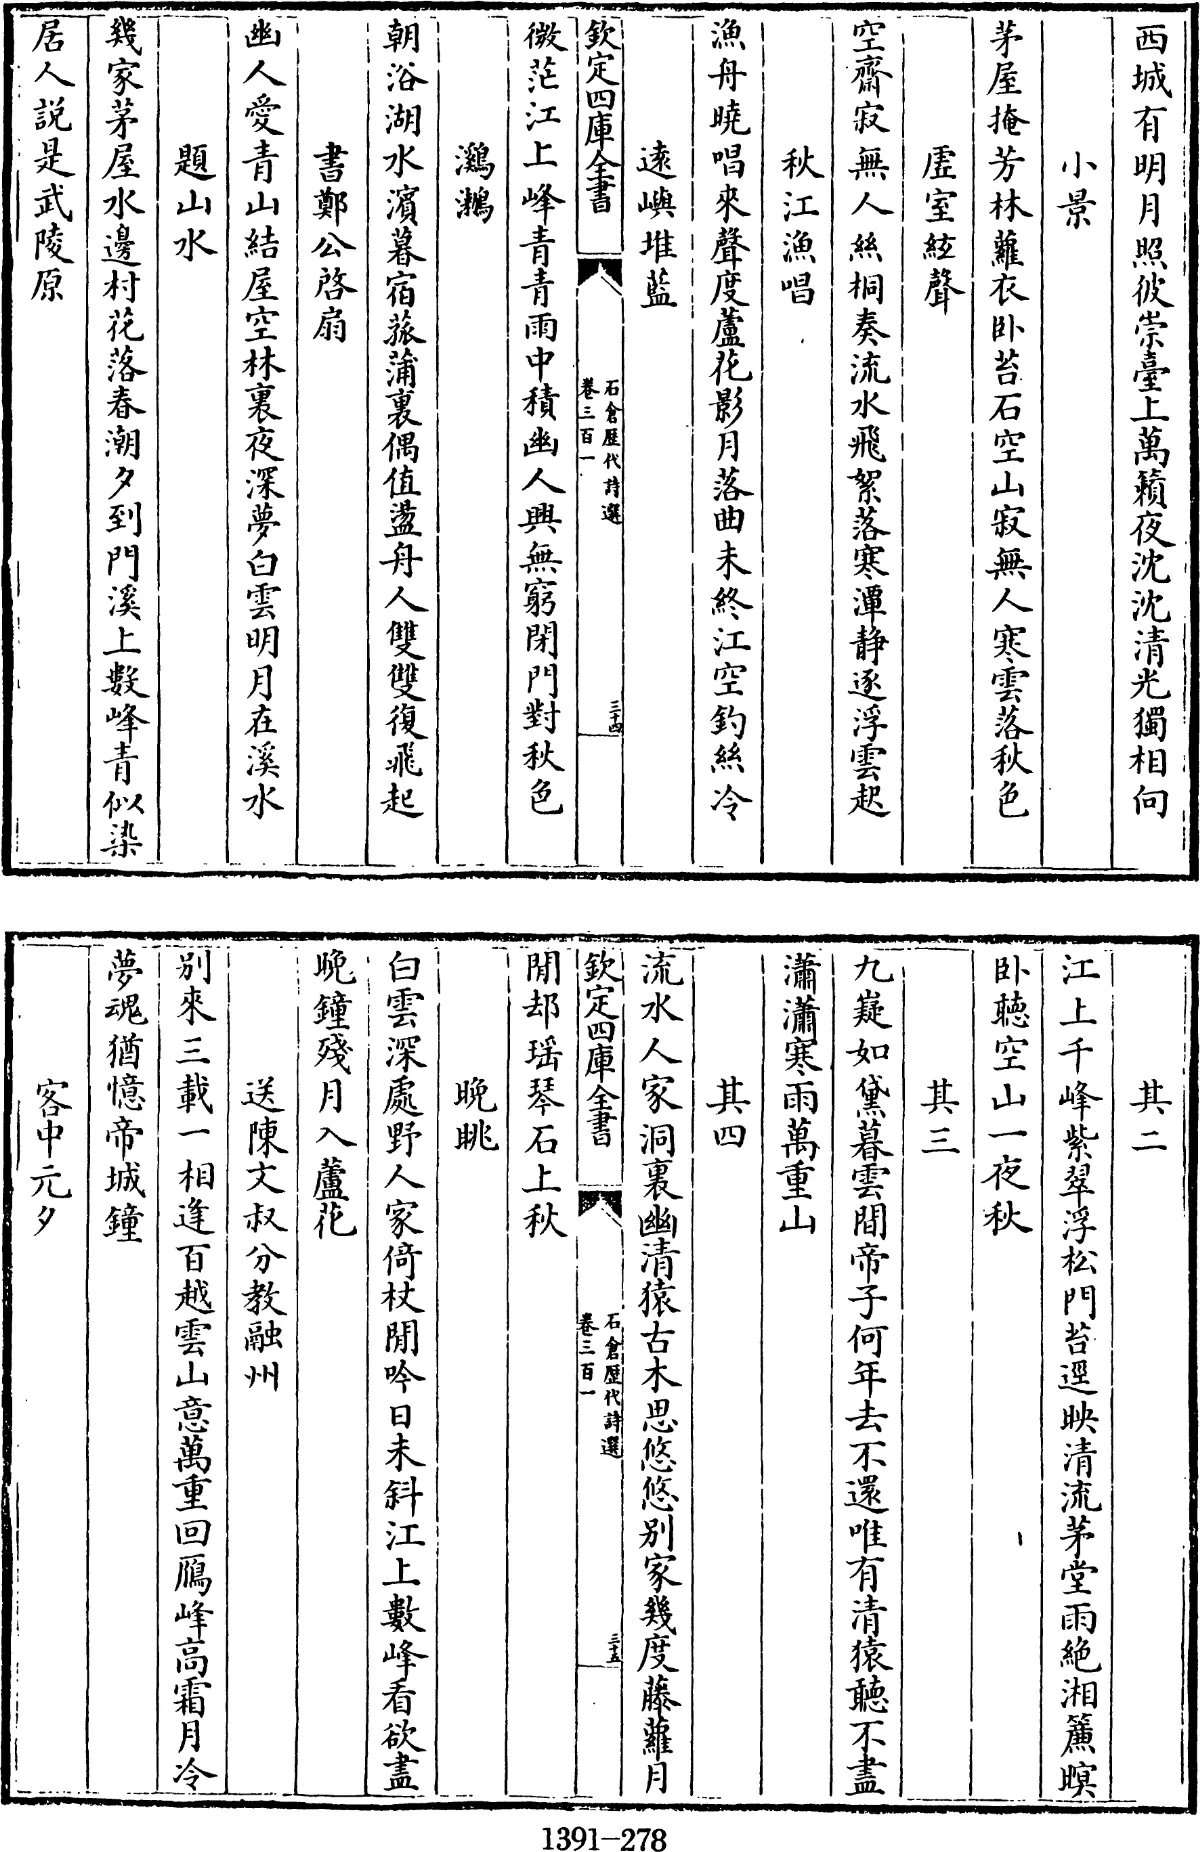 西城有明月照彼崇臺上萬籟夜沈沈清光獨相向
小景
茅屋掩芳林蘿衣卧苔石空山寂無人寒雲落秋色
虛室絃聲
空齋寂無人絲桐奏流水飛絮落寒潭静逐浮雲起
秋江漁唱
漁舟曉唱來聲度蘆花影月落曲未終江空釣絲冷
逺嶼堆藍
欽定四庫全書
石倉歴代詩選
卷三百一
三十四
微茫江上峰青青雨中積幽人興無窮閉門對秋色
鸂鶒
朝浴湖水濱暮宿菰蒲裏偶值盪舟人雙雙復飛起
書鄭公啓扇
幽人愛青山結屋空林裏夜深夢白雲明月在溪水
題山水
幾家茅屋水邊村花落春潮夕到門溪上數峰青似染
居人説是武陵原
其二
江上千峰紫翠浮松門苔逕映清流茅堂雨絶湘簾暝
卧聴空山一夜秋
其三
九嶷如黛暮雲間帝子何年去不還唯有清猿聴不盡
瀟瀟寒雨萬重山
其四
流水人家洞裏幽清猿古木思悠悠别家幾度藤蘿月
欽定四庫全書
石倉歴代詩選
卷三百一
三十五
閒却瑶琴石上秋
晚眺
白雲深處野人家倚杖閒吟日未斜江上數峰看欲盡
晚鐘殘月入蘆花
送陳文叔分教融州
别來三載一相逢百越雲山意萬重回鴈峰高霜月冷
夢魂猶憶帝城鐘
客中元夕
1391-278